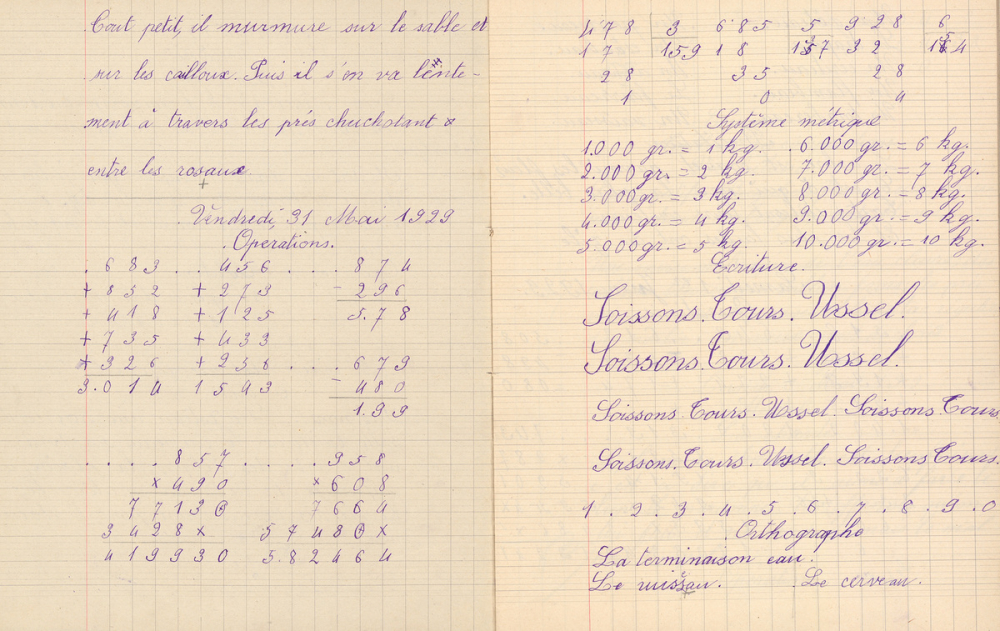 Tout petit, il murmure sur le sable et
sur les cailloux. Puis il s'en va lente-
ment à travers les prés chuchotant
entre les rosaux
Vendredi, 31 Mai 1929
Opérations.
. 6 8 3 . . 4 5 6 . . . . 8 7 4
+ 8 5 2 + 2 7 3 - 2 9 6
+ 4 1 8 + 1 2 5 5.7 8
+ 7 3 5 + 4 3 3
+ 3 2 6 + 2 5 6 . . . . 6 7 9
3.0 1 4 1 5 4 3 - 4 8 0
1.9 9
. . . . 8 5 7 . . . . . 9 5 8
× 4 9 0 × 6 0 8
7 7 1 3 0 7 6 6 4
3 4 2 8 × 5 7 4 8 0 ×
4 1 9 9 3 0 5.8 2 4 6 4
4 7 8 3 6 8 5 5 9 2 8 6
1 7 159 1 8 137 3 2 154
2 8 3 5 2 8
1 0 4
Système métrique
1.000 gr. = 1 kg. . 6.000 gr. = 6 kg.
2.000 gr. = 2 kg. 7.000 gr. = 7 kg.
3.000 gr. = 3 kg. 8.000 gr. = 8 kg.
4.000 gr. = 4 kg. 9.000 gr. = 9 kg.
5.000 gr. = 5 kg. 10.000 gr. = 10 kg.
Ecriture.
Soissons. Tours. Ussel.
Soissons. Tours. Ussel.
Soissons. Tours. Ussel. Soissons. Tours
Soissons. Tours. Ussel. Soissons. Tours.
1 . 2 . 3 . 4 . 5 . 6 . 7 . 8 . 9 . 0
Orthographe
La terminaison eau.
Le ruisseau. Le cerveau.